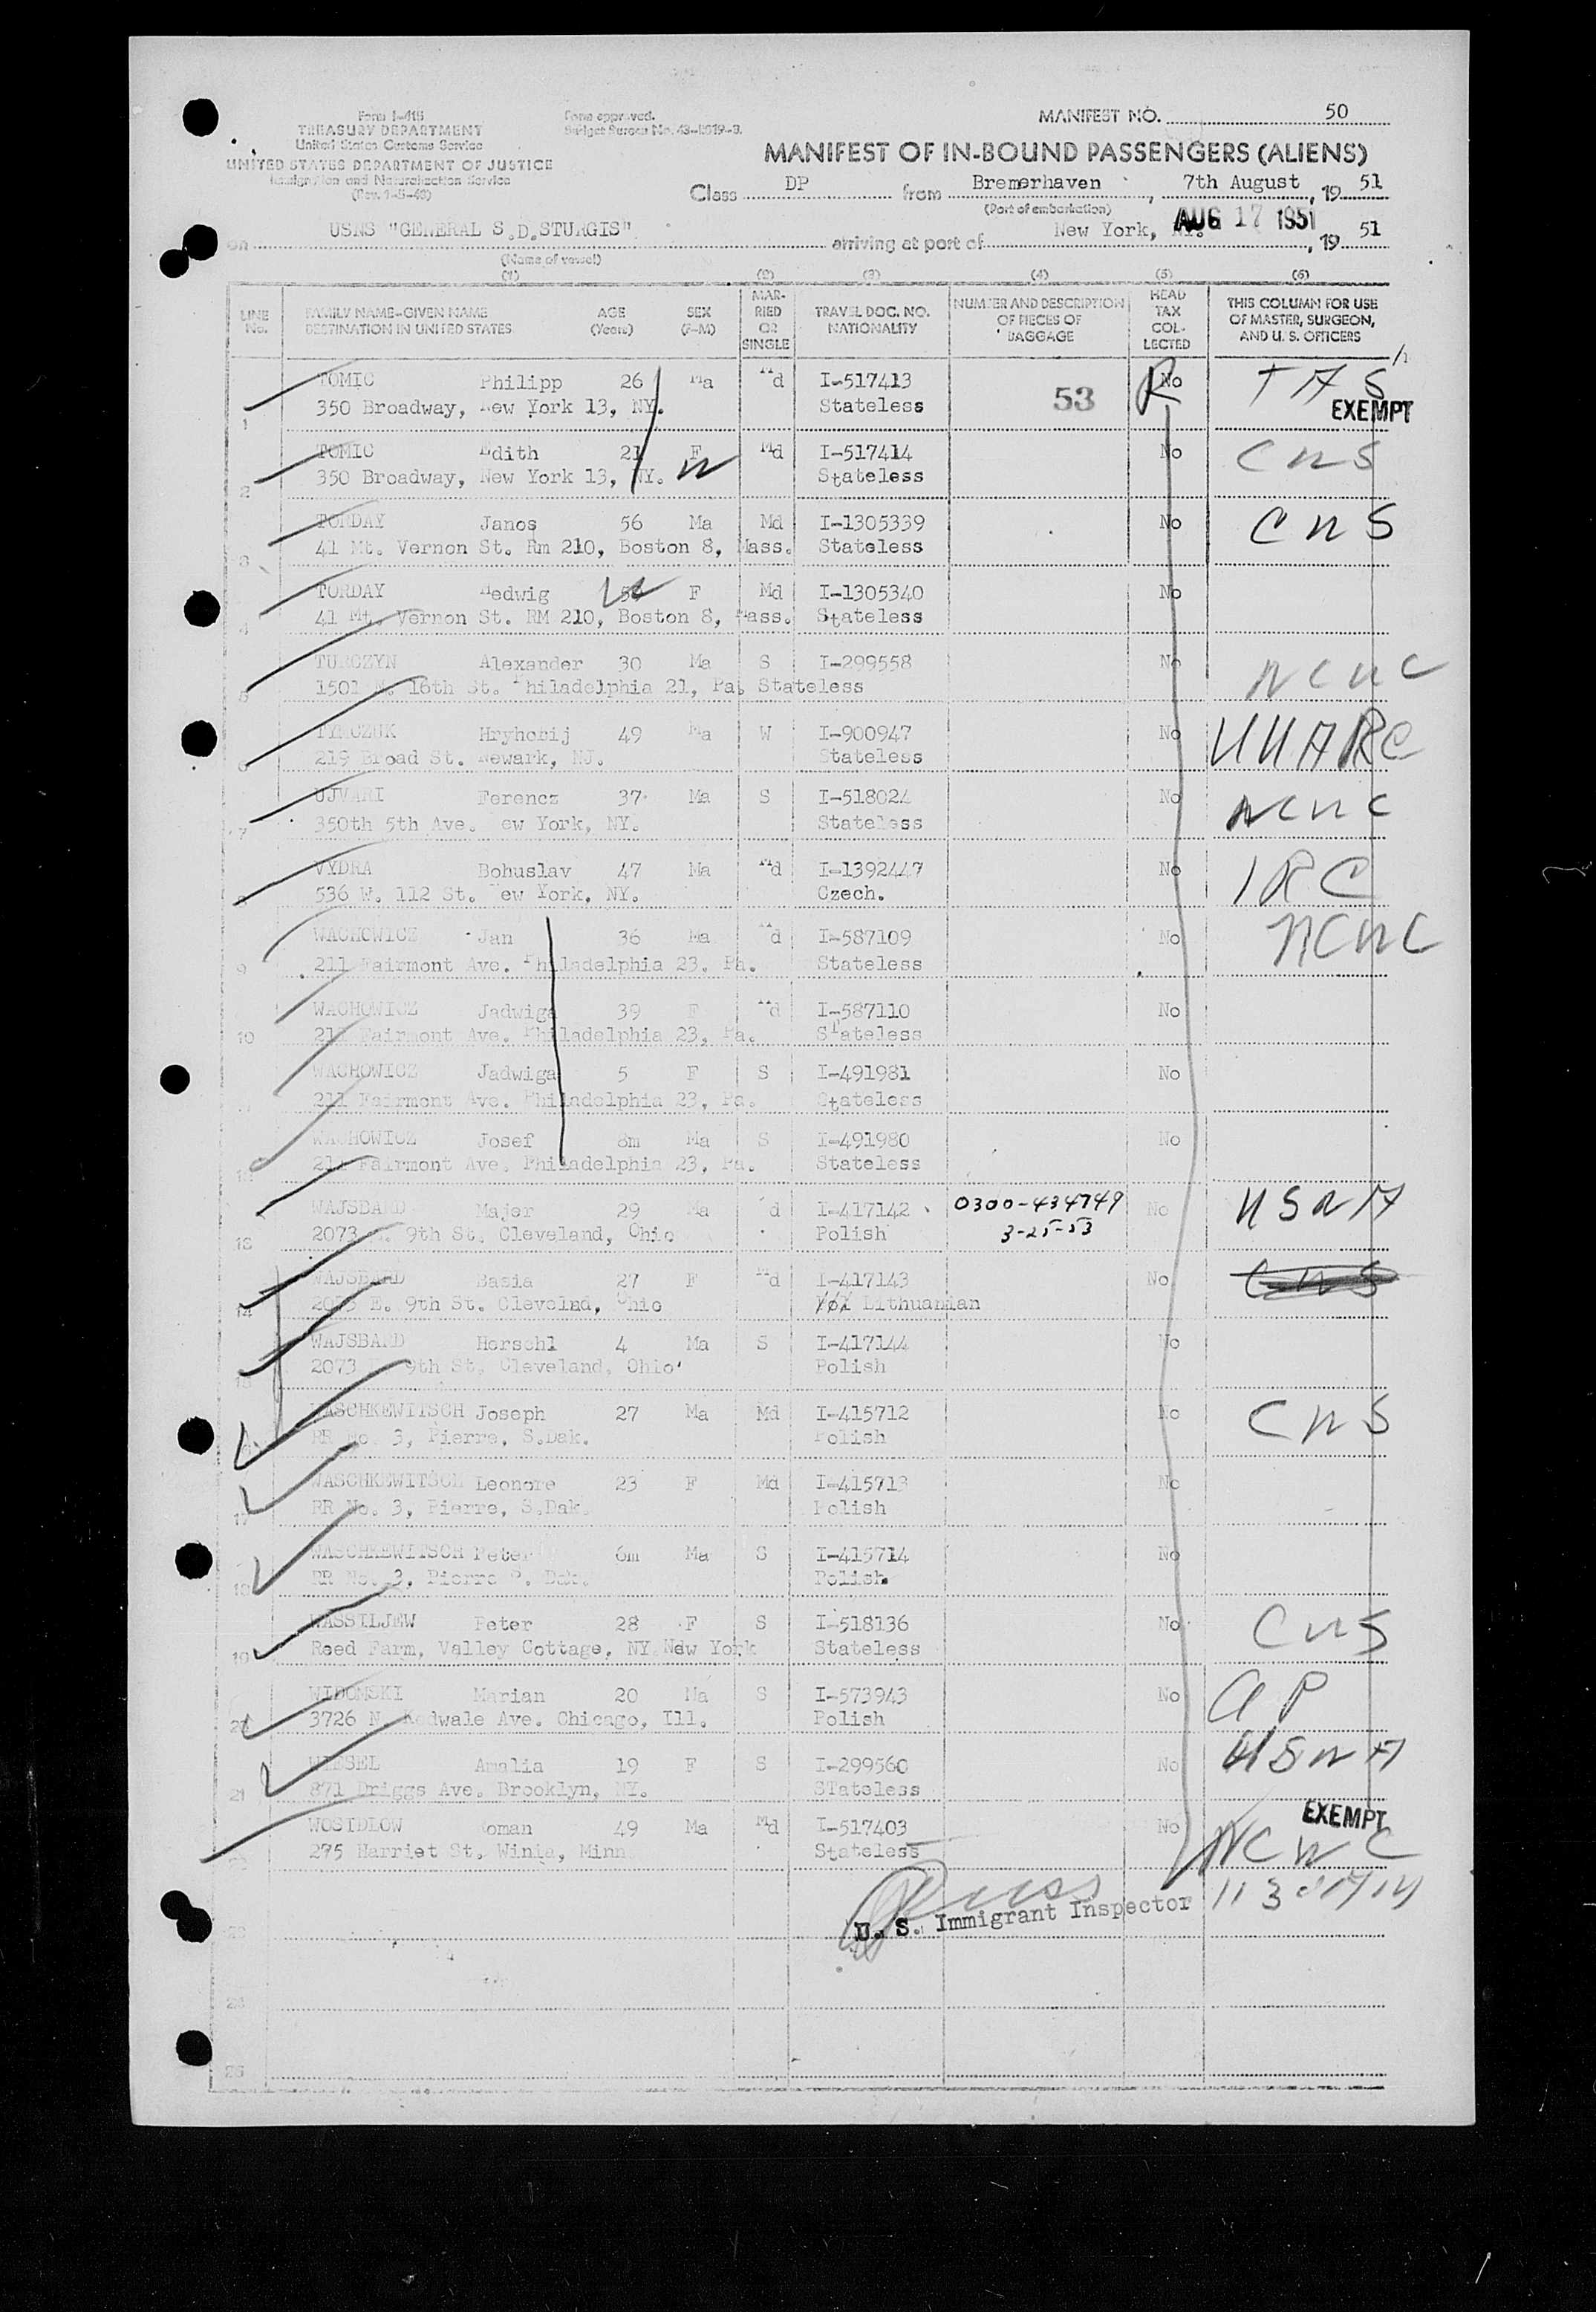 Form I-415
TREASURY DEPARTMENT
United States Customs Service
UNITED STATES DEPARTMENT OF JUSTICE
Immigration and Naturalization Service
Form approved.
MANIFEST NO. 50
MANIFEST OF IN-BOUND PASSENGERS (ALIENS)
Class DP from Bremerhaven, 7th August, 19 51
(Port of embarkation)
on USNS "GENERAL S.D.STURGIS" arriving at port of New York, AUG 17 1951, 19 51
(Name of vessel)
(1) (2) (3) (4) (5) (6)
LINE No. FAMILY NAME-GIVEN NAME DESTINATION IN UNITED STATES AGE (Years) SEX (F-M) MARRIED OR SINGLE TRAVEL DOC. NO. NATIONALITY NUMBER AND DESCRIPTION OF PIECES OF BAGGAGE HEAD TAX COLLECTED THIS COLUMN FOR USE OF MASTER, SURGEON, AND U. S. OFFICERS
1 TOMIC Philipp 26 Ma Md I-517413 53 R No
350 Broadway, New York 13, NY. Stateless EXEMPT
2 TOMIC Edith 21 F Md I-517414 No CNS
350 Broadway, New York 13, NY. Stateless
3 TORDAY Janos 56 Ma Md I-1305339 No CNS
41 Mt. Vernon St. Rm 210, Boston 8, Mass. Stateless
4 TORDAY Hedwig F Md I-1305340 No
41 Mt. Vernon St. RM 210, Boston 8, Mass. Stateless
5 TURCZYN Alexander 30 Ma S I-299558 No NCWC
1501 N. 16th St. Philadelphia 21, Pa. Stateless
6 Hryhorij 49 Ma W I-900947 No UUARC
219 Broad St. Newark, NJ. Stateless
7 UJVARI Ferencz 37 Ma S I-518024 No NCWC
350th 5th Ave. New York, NY. Stateless
8 VYDRA Bohuslav 47 Ma Md I-1392447 No IRC
536 W. 112 St. New York, NY. Czech.
9 WACHOWICZ Jan 36 Ma Md I-587109 No NCWC
211 Fairmont Ave. Philadelphia 23, Pa. Stateless
10 WACHOWICZ Jadwiga 39 F Md I-587110 No
211 Fairmont Ave. Philadelphia 23, Pa. Stateless
WACHOWICZ Jadwiga 5 F S I-491981 No
211 Fairmont Ave. Philadelphia 23, Pa. Stateless
WACHOWICZ Josef 8m Ma S I-491980 No
211 Fairmont Ave. Philadelphia 23, Pa. Stateless
13 WAJSBAND Majer 29 Ma d I-417142 0300-434749 No USNA
2073 E. 9th St. Cleveland, Ohio Polish 3-25-53
14 WAJSBAND Basia 27 F Md I-417143 No CNS
2073 E. 9th St. Clevelnd, Ohio Lithuanian
15 WAJSBAND Herschl 4 Ma S I-417144 No
2073 9th St. Cleveland, Ohio Polish
WASCHKEWITSCH Joseph 27 Ma Md I-415712 No CNS
RR No. 3, Pierre, S.Dak. Polish
17 WASCHKEWITSCH Leonore 23 F Md I-415713 No
RR No. 3, Pierre, S.Dak. Polish
18 WASCHKEWITSCH Peter 6m Ma S I-415714 No
RR No. 3, Pierre Dak. Polish
19 WASSILJEW Peter 28 F S I-518136 No CNS
Reed Farm, Valley Cottage, NY. New York Stateless
WIDOMSKI Marian 20 Ma S I-573943 No
3726 N. Kedwale Ave. Chicago, Ill. Polish
21 WIESEL Amalia 19 F S I-299560 No USNA
871 Driggs Ave. Brooklyn, NY. STateless
WOSTDLOW Roman 49 Ma Md I-517403 No EXEMPT NCWC
275 Harriet St. Winia, Minn Stateless
U. S. Immigrant Inspector
25